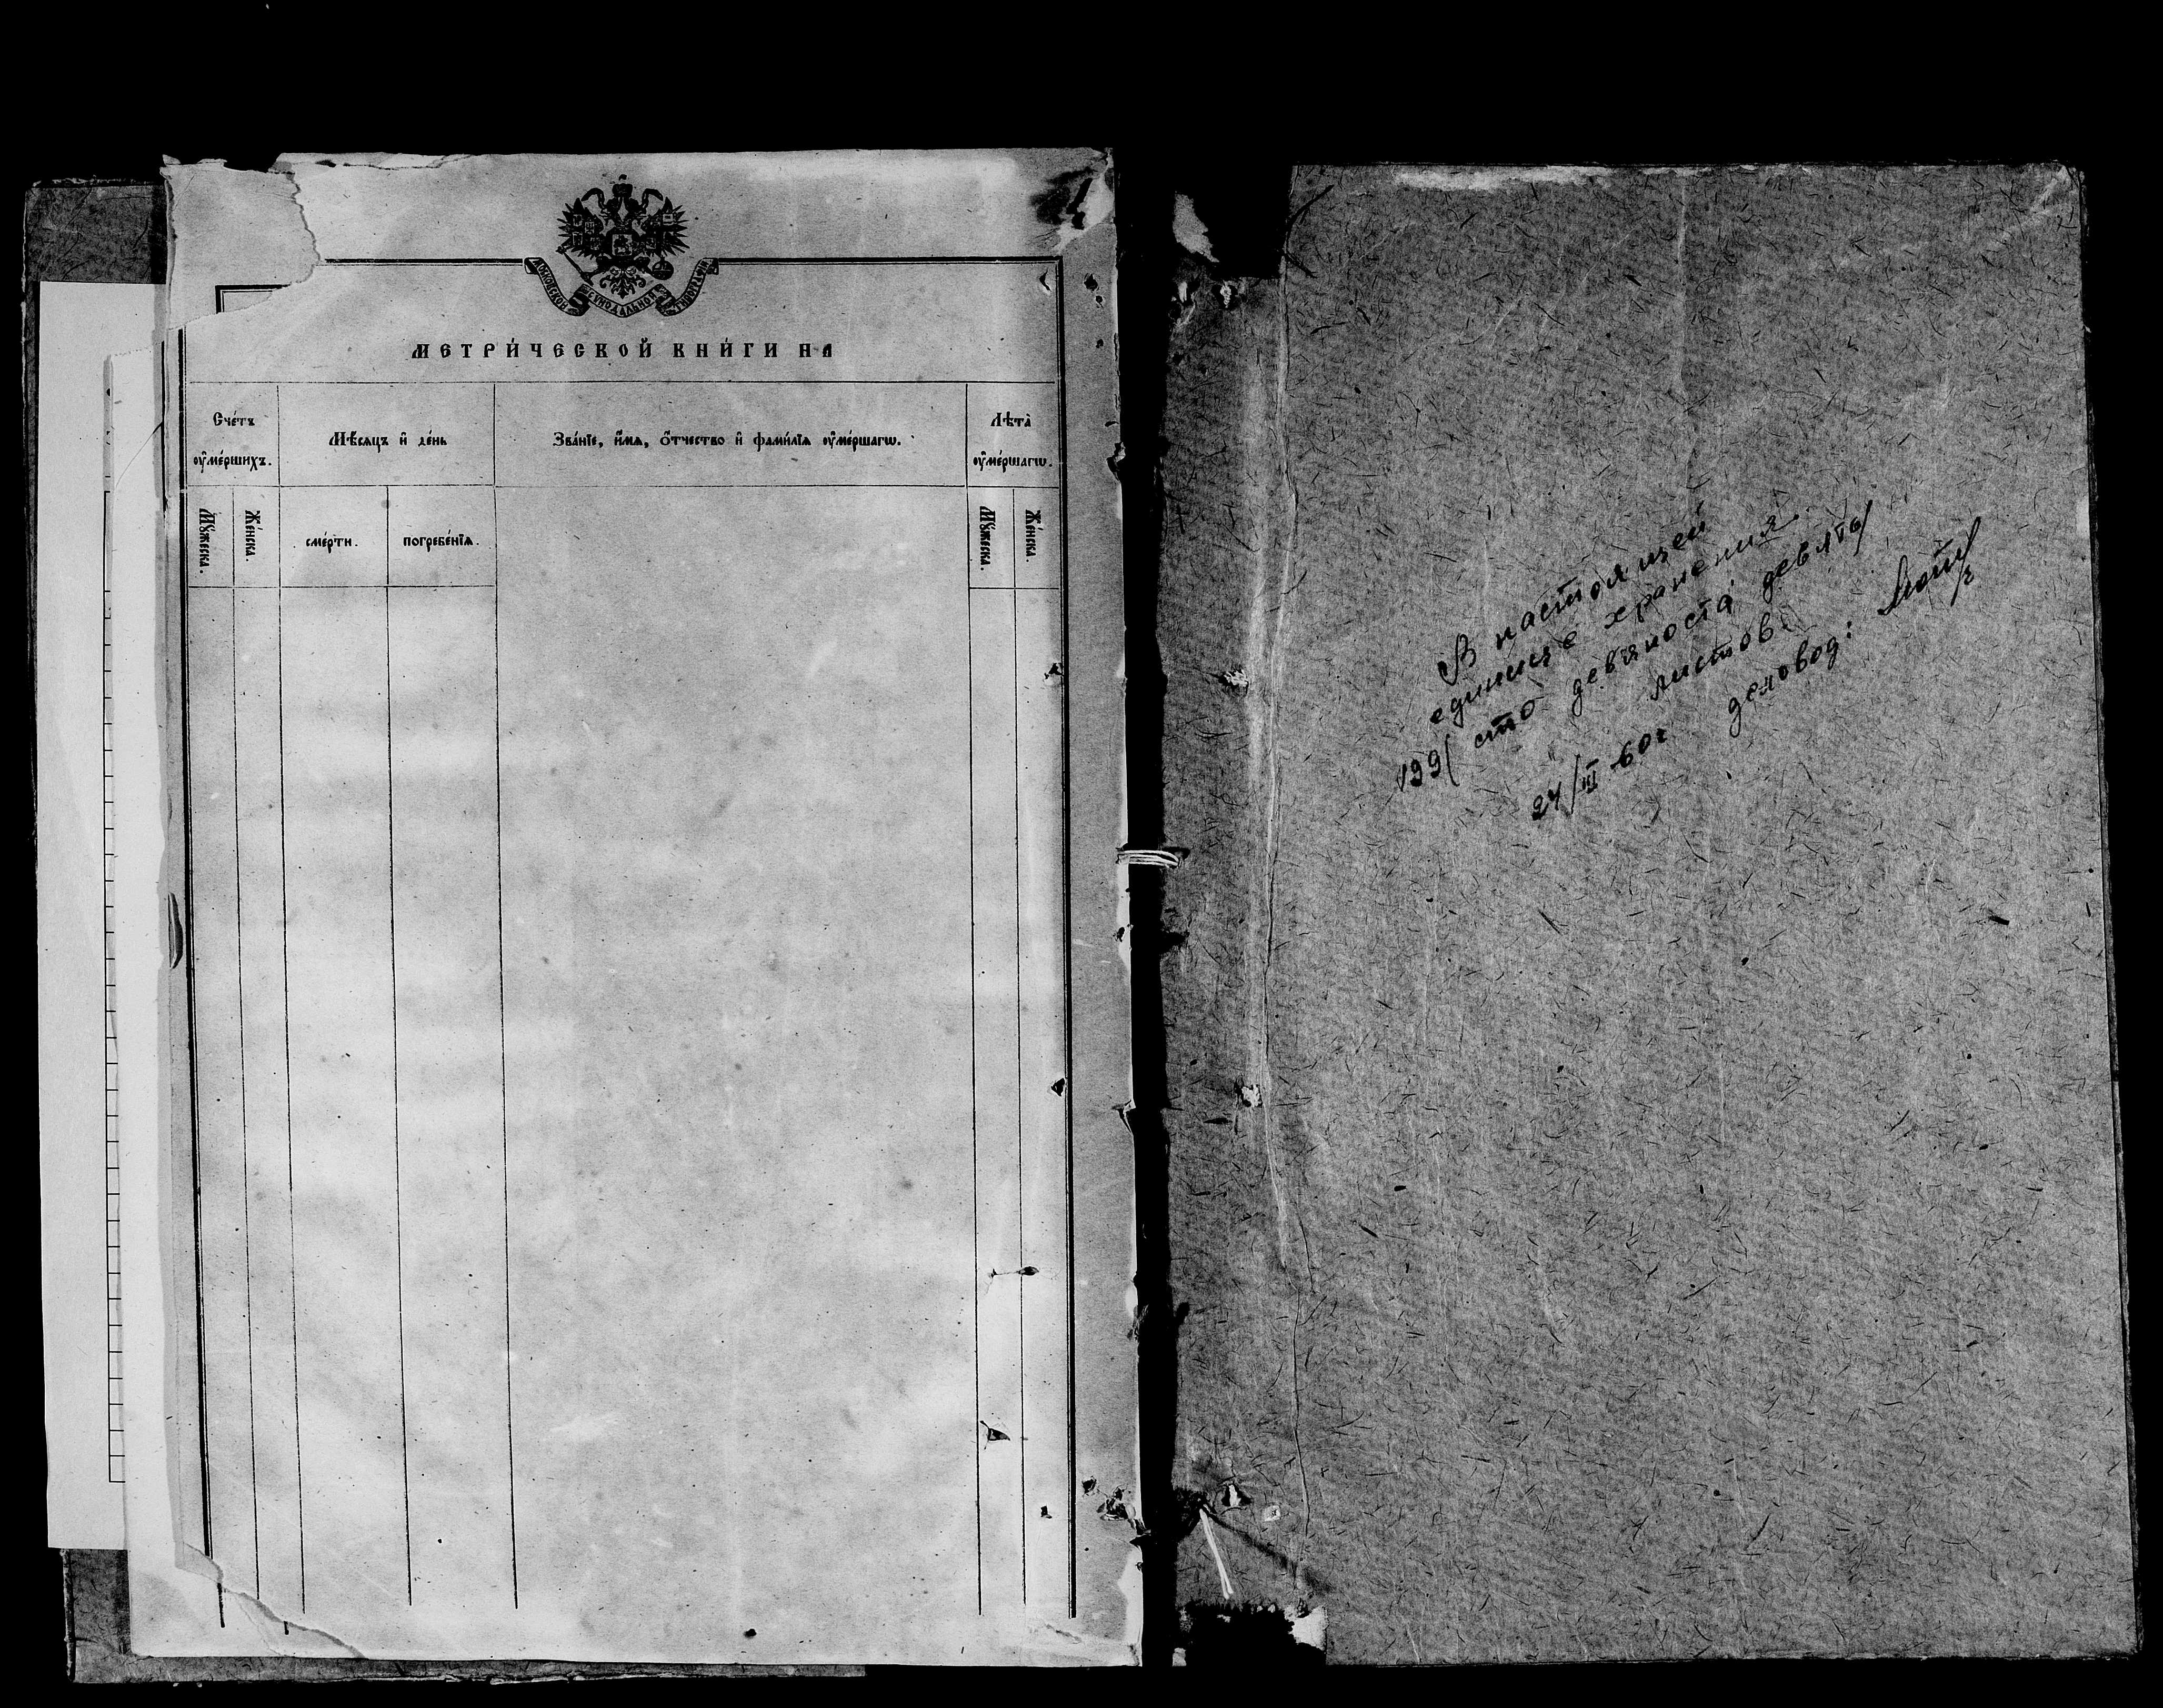 МОСКОВСКОЙ СѴНОДАЛЬНОЙ ТИПОГРАФІИ
МЕТРИ́ЧЕСКОЙ КНИ́ГИ НА
Сче́тъ
оу҆ме́ршихъ.
Мѣ́сяцъ и҆ де́нь
Зва́нїе, и҆́мя, ѻ҆́тчество и҆ фами́лїя оу҆ме́ршагѡ.
Лѣта̀
оу҆ме́ршагѡ.
Мꙋ́жеска.
Же́нска.
сме́рти.
погребе́нїя.
Мꙋ́жеска.
Же́нска.
В настоящей
единице хранения
199( сто девяноста девять)
листов.
24/III 60г деловод: